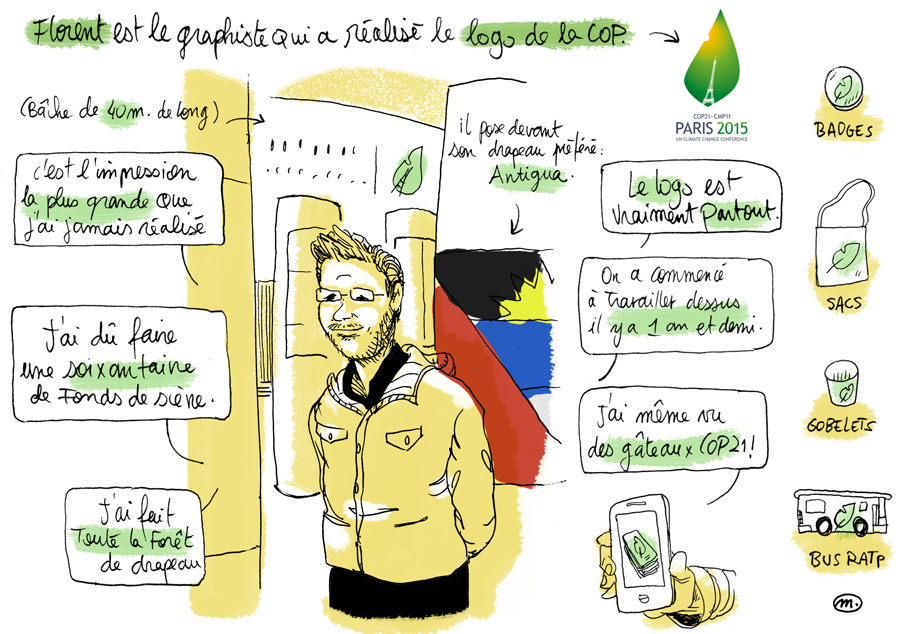 Florent est le graphiste qui a réalisé le logo de la COP.
(Bâche de 40 m. de long)
c'est l'impression
la plus grande que
j'ai jamais réalisé
J'ai dû faire
une soixantaine
de Fonds de scène.
J'ai fait
Toute la Forêt
de drapeau
il pose devant
son drapeau préféré:
Antigua.
COP21 · CMP11
PARIS 2015
UN CLIMATE CHANGE CONFERENCE
Le logo est
vraiment Partout.
On a commencé
à travailler dessus
il y a 1 an et demi.
J'ai même vu
des gâteaux COP21!
BADGES
SACS
GOBELETS
BUS RATP
m.